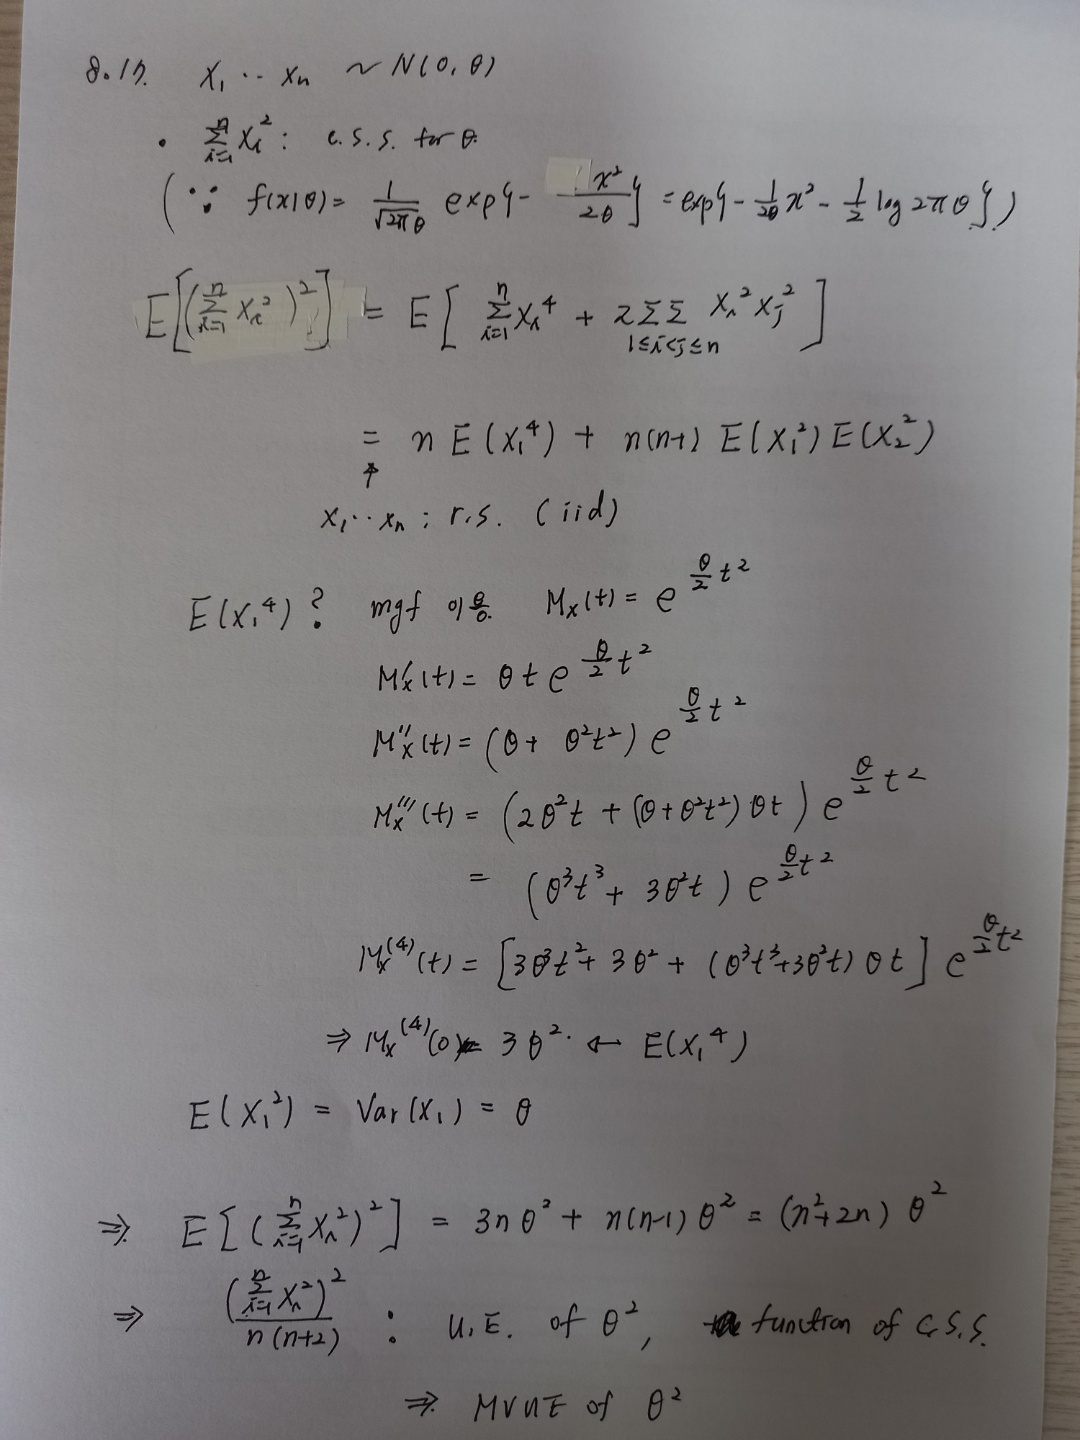 8.17. X₁ ·· Xₙ ~ N(0, θ)
• Σᵢ₌₁ⁿ Xᵢ² : c.s.s. for θ.
(∵ f(x|θ) = 1/√2πθ exp{- x²/2θ} = exp{- 1/2θ x² - 1/2 log 2πθ})
E[(Σᵢ₌₁ⁿ Xᵢ²)²] = E[Σᵢ₌₁ⁿ Xᵢ⁴ + 2ΣΣ Xᵢ² Xⱼ²]
1≤i<j≤n
= n E(X₁⁴) + n(n-1) E(X₁²) E(X₂²)
↑
X₁ ·· Xₙ ; r.s. (iid)
E(X₁⁴)? mgf 이용. M_X(t) = e^{θ/2 t²}
M'_X(t) = θt e^{θ/2 t²}
M''_X(t) = (θ + θ²t²) e^{θ/2 t²}
M'''_X(t) = (2θ²t + (θ+θ²t²) θt) e^{θ/2 t²}
= (θ³t³ + 3θ²t) e^{θ/2 t²}
M_X^{(4)}(t) = [3θ³t² + 3θ² + (θ³t³+3θ²t) θt] e^{θ/2 t²}
⇒ M_X^{(4)}(0) = 3θ². ← E(X₁⁴)
E(X₁²) = Var(X₁) = θ
⇒ E[(Σᵢ₌₁ⁿ Xᵢ²)²] = 3nθ² + n(n-1)θ² = (n²+2n) θ²
⇒ (Σᵢ₌₁ⁿ Xᵢ²)² / n(n+2) : U.E. of θ², function of c.s.s.
⇒ MVUE of θ²